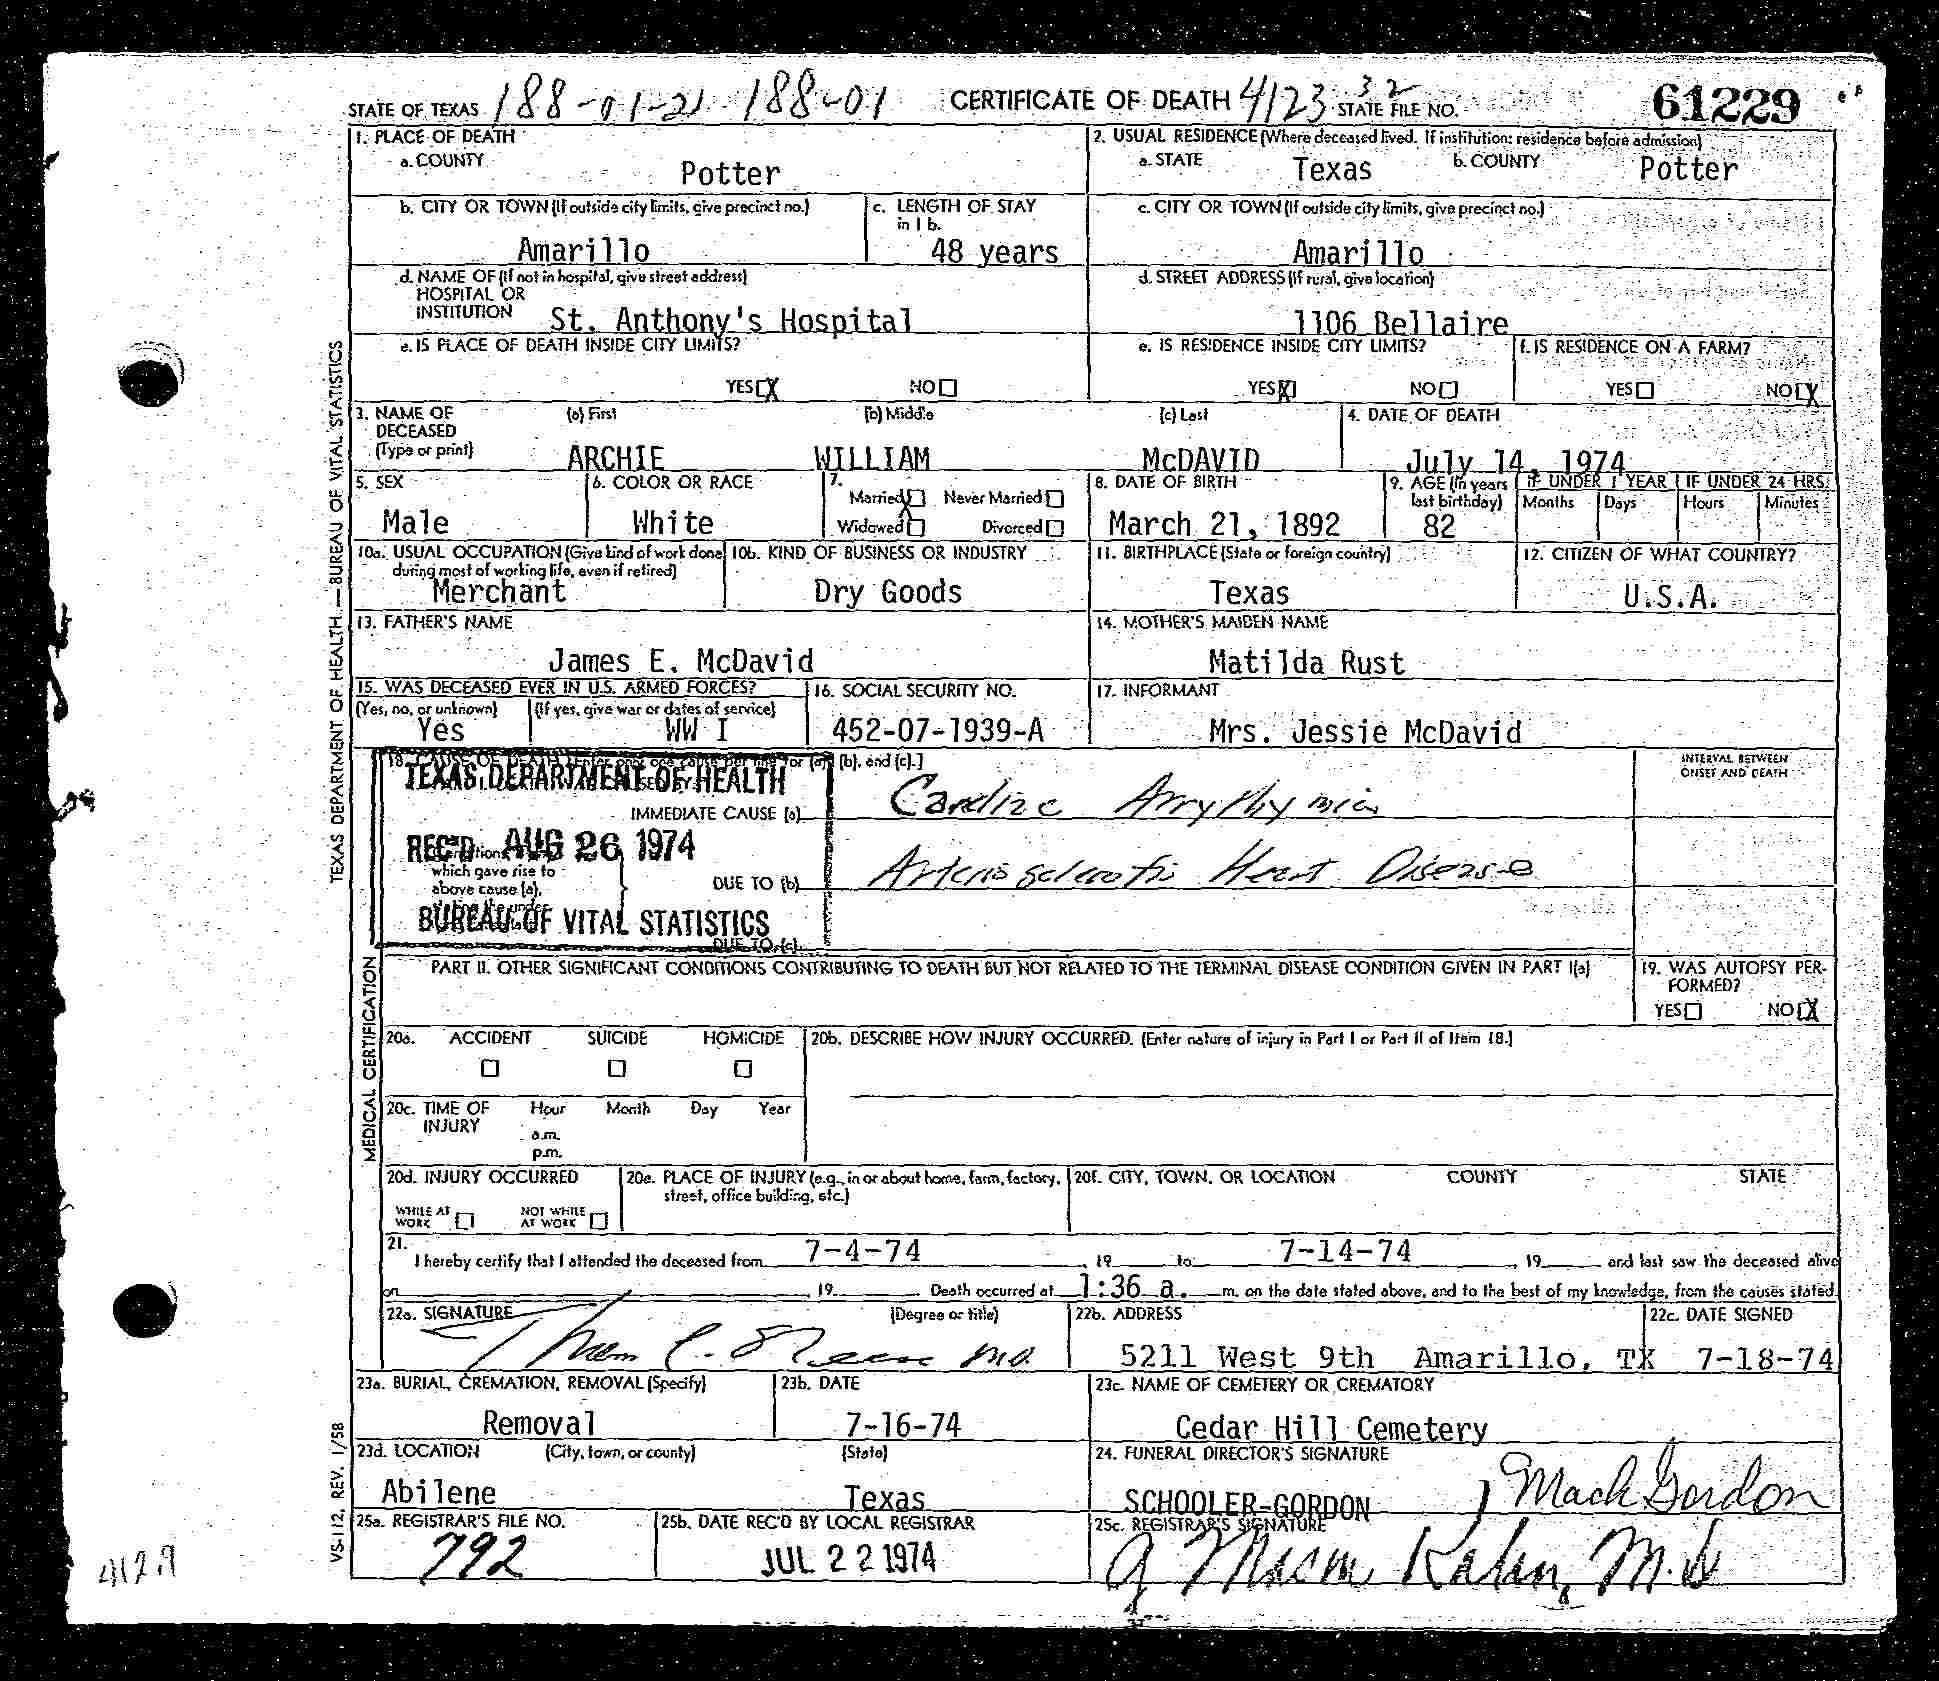 STATE OF TEXAS 188-01-21 188-01 CERTIFICATE OF DEATH 4123 32 STATE FILE NO. 61229
1. PLACE OF DEATH
a. COUNTY
Potter
2. USUAL RESIDENCE (Where deceased lived. If institution: residence before admission)
a. STATE Texas b. COUNTY Potter
b. CITY OR TOWN (If outside city limits, give precinct no.)
Amarillo
c. LENGTH OF STAY
in 1 b.
48 years
c. CITY OR TOWN (If outside city limits, give precinct no.)
Amarillo
d. NAME OF (If not in hospital, give street address)
HOSPITAL OR
INSTITUTION St. Anthony's Hospital
d. STREET ADDRESS (If rural, give location)
1106 Bellaire
e. IS PLACE OF DEATH INSIDE CITY LIMITS?
YES X NO
e. IS RESIDENCE INSIDE CITY LIMITS?
YES X NO
f. IS RESIDENCE ON A FARM?
YES NO X
3. NAME OF (a) First (b) Middle (c) Last
DECEASED
(Type or print) ARCHIE WILLIAM McDAVID
4. DATE OF DEATH
July 14, 1974
5. SEX
Male
6. COLOR OR RACE
White
7.
Married X Never Married
Widowed Divorced
8. DATE OF BIRTH
March 21, 1892
9. AGE (In years
last birthday)
82
IF UNDER 1 YEAR
Months Days
IF UNDER 24 HRS.
Hours Minutes
10a. USUAL OCCUPATION (Give kind of work done
during most of working life, even if retired)
Merchant
10b. KIND OF BUSINESS OR INDUSTRY
Dry Goods
11. BIRTHPLACE (State or foreign country)
Texas
12. CITIZEN OF WHAT COUNTRY?
U.S.A.
13. FATHER'S NAME
James E. McDavid
14. MOTHER'S MAIDEN NAME
Matilda Rust
15. WAS DECEASED EVER IN U.S. ARMED FORCES?
(Yes, no, or unknown) (If yes, give war or dates of service)
Yes WW I
16. SOCIAL SECURITY NO.
452-07-1939-A
17. INFORMANT
Mrs. Jessie McDavid
18. CAUSE OF DEATH [Enter only one cause per line for (a), (b), and (c).]
TEXAS DEPARTMENT OF HEALTH
REC'D AUG 26 1974
BUREAU OF VITAL STATISTICS
INTERVAL BETWEEN
ONSET AND DEATH
IMMEDIATE CAUSE (a) Cardiac Arrythymia
which gave rise to
above cause (a),
DUE TO (b) Arteriosclerotic Heart Disease
DUE TO (c)
PART II. OTHER SIGNIFICANT CONDITIONS CONTRIBUTING TO DEATH BUT NOT RELATED TO THE TERMINAL DISEASE CONDITION GIVEN IN PART I(a)
19. WAS AUTOPSY PER-
FORMED?
YES NO X
20a. ACCIDENT SUICIDE HOMICIDE
20b. DESCRIBE HOW INJURY OCCURRED. (Enter nature of injury in Part I or Part II of Item 18.)
20c. TIME OF Hour Month Day Year
INJURY
a.m.
p.m.
20d. INJURY OCCURRED
WHILE AT
WORK
NOT WHILE
AT WORK
20e. PLACE OF INJURY (e.g., in or about home, farm, factory,
street, office building, etc.)
20f. CITY, TOWN, OR LOCATION COUNTY STATE
21.
I hereby certify that I attended the deceased from 7-4-74, 19 to 7-14-74, 19 and last saw the deceased alive
on , 19 . Death occurred at 1:36 a. m. on the date stated above, and to the best of my knowledge, from the causes stated.
22a. SIGNATURE (Degree or title)
MD.
22b. ADDRESS
5211 West 9th Amarillo, TX
22c. DATE SIGNED
7-18-74
23a. BURIAL, CREMATION, REMOVAL (Specify)
Removal
23b. DATE
7-16-74
23c. NAME OF CEMETERY OR CREMATORY
Cedar Hill Cemetery
23d. LOCATION (City, town, or county) (State)
Abilene Texas
24. FUNERAL DIRECTOR'S SIGNATURE
SCHOOLER-GORDON Mack Gordon
25a. REGISTRAR'S FILE NO.
792
25b. DATE REC'D BY LOCAL REGISTRAR
JUL 22 1974
25c. REGISTRAR'S SIGNATURE
M.D
TEXAS DEPARTMENT OF HEALTH—BUREAU OF VITAL STATISTICS
MEDICAL CERTIFICATION
VS-112, REV. 1/58
4129